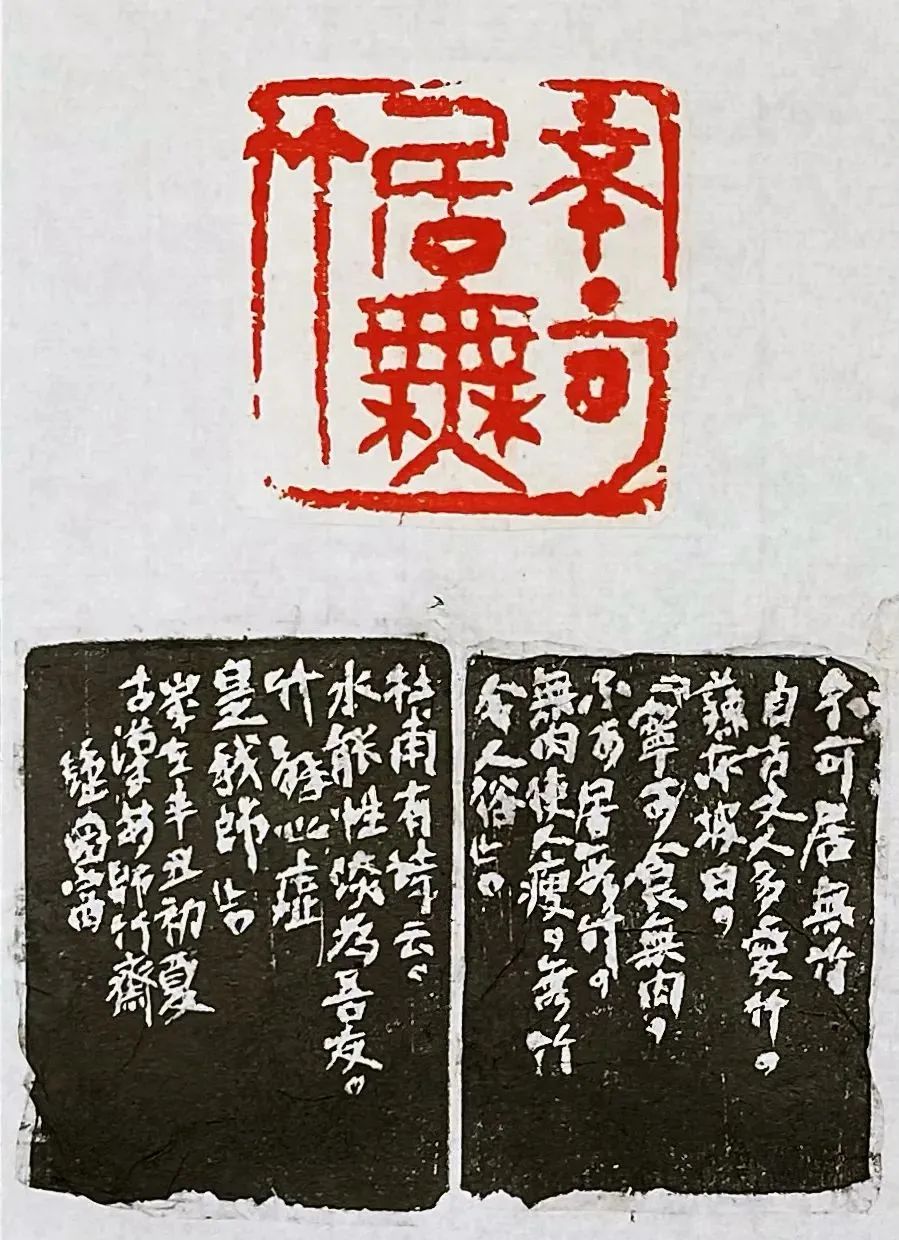 不可居無竹
不可居無竹
自古文人多愛竹。
蘇東坡曰，
「寧可食無肉，
不可居無竹。
無肉使人瘦，無竹
令人俗」。
杜甫有詩云：
水能性淡為吾友。
竹解心虛
是我師」。
歲在辛丑初夏
古漢安師竹齋
鍾國富